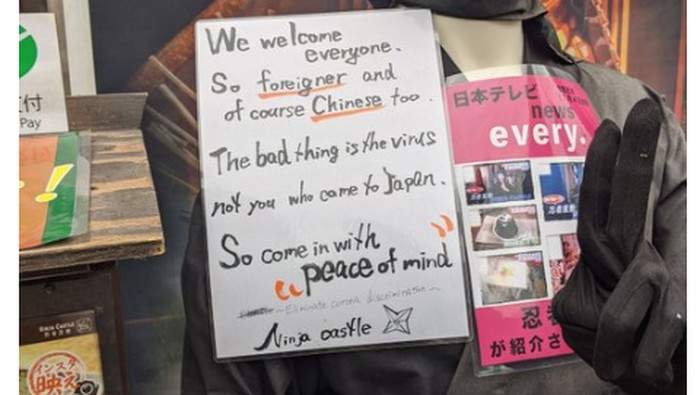 We welcome
everyone.
So foreigner and
of course Chinese too.
The bad thing is the virus
not you who came to Japan.
So come in with
"peace of mind"
~Eliminate corona discrimination~
Ninja castle
日本テレビ
news
every.
忍者
が紹介さ
付
Pay
!
NINJA CASTLE
インスタ
映え